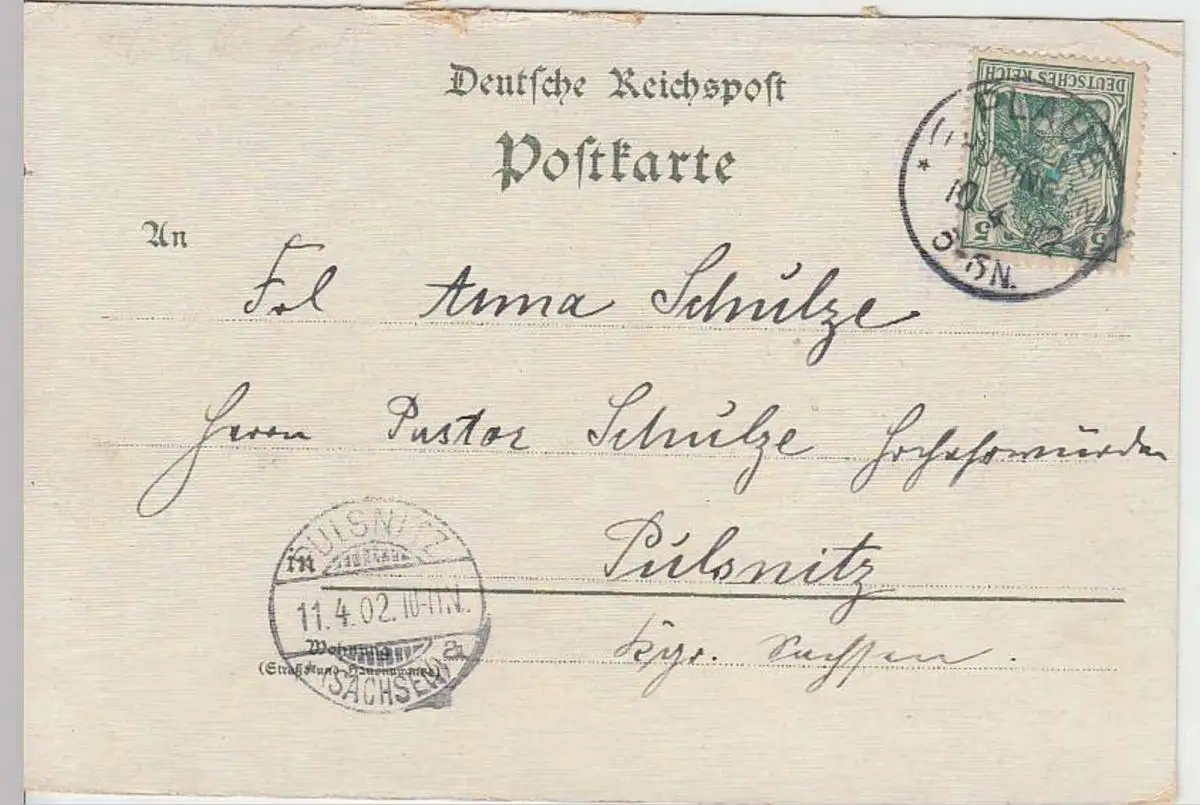 Deutsche Reichspost
Postkarte
DEUTSCHES REICH
5 5
BLAUE
(THÜRINGEN)
10 4 02
5-6N.
An
Frl Anna Schulze
Herrn Pastor Schulze Hochehrwürden
in Pulsnitz
Kgr. Sachsen.
Wohnung
(Straße und Hausnummer)
PULSNITZ
11.4.02.10-11N.
a
(SACHSEN)